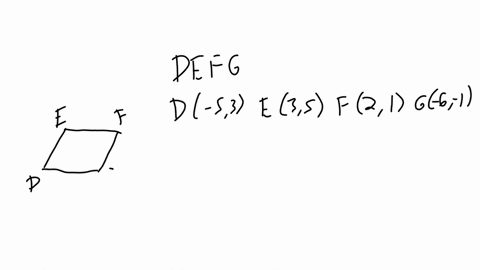 DEFG
D(-5,3) E(3,5) F(2,1) G(-6,-1)
E F
D